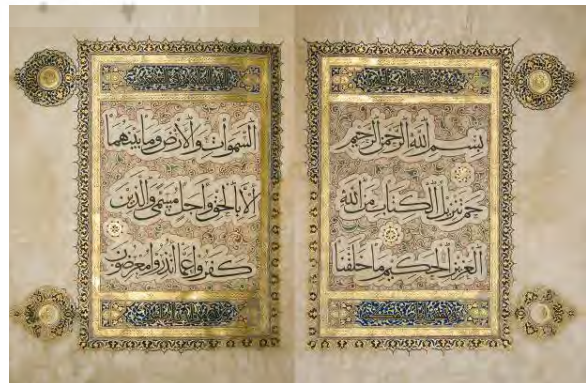 بِسْمِ اللَّهِ الرَّحْمَٰنِ الرَّحِيمِ
حم تَنْزِيلُ الْكِتَابِ مِنَ اللَّهِ
الْعَزِيزِ الْحَكِيمِ مَا خَلَقْنَا
السَّمَوَاتِ وَالْأَرْضَ وَمَا بَيْنَهُمَا
إِلَّا بِالْحَقِّ وَأَجَلٍ مُسَمًّى وَالَّذِينَ
كَفَرُوا عَمَّا أُنْذِرُوا مُعْرِضُونَ